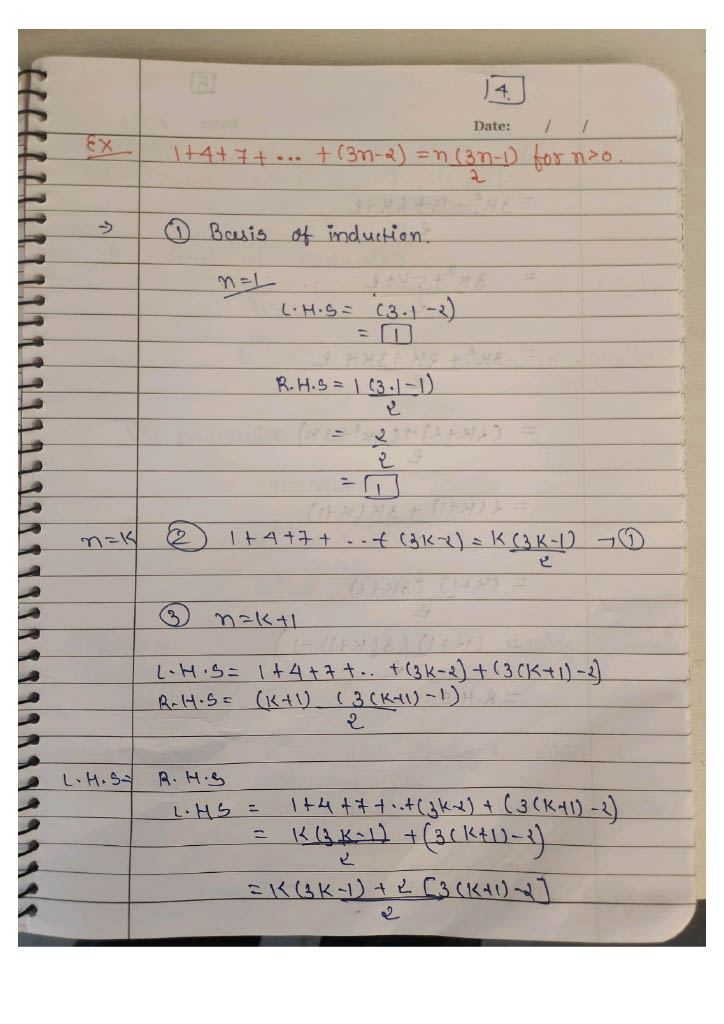 14.
Date: / /
Ex 1+4+7+ ... +(3n-2) = n(3n-1)/2 for n>0.
⇒ ① Basis of induction.
n=1
L.H.S = (3.1-2)
= 1
R.H.S = 1(3.1-1)/2
= 2/2
= 1
n=K ② 1+4+7+ ...+(3K-2) = K(3K-1)/2 → ①
③ n=K+1
L.H.S = 1+4+7+..+(3K-2)+(3(K+1)-2)
R.H.S = (K+1) (3(K+1)-1)/2
L.H.S = R.H.S
L.HS = 1+4+7+..+(3K-2)+(3(K+1)-2)
= K(3K-1)/2 +(3(K+1)-2)
= K(3K-1)+2[3(K+1)-2]/2